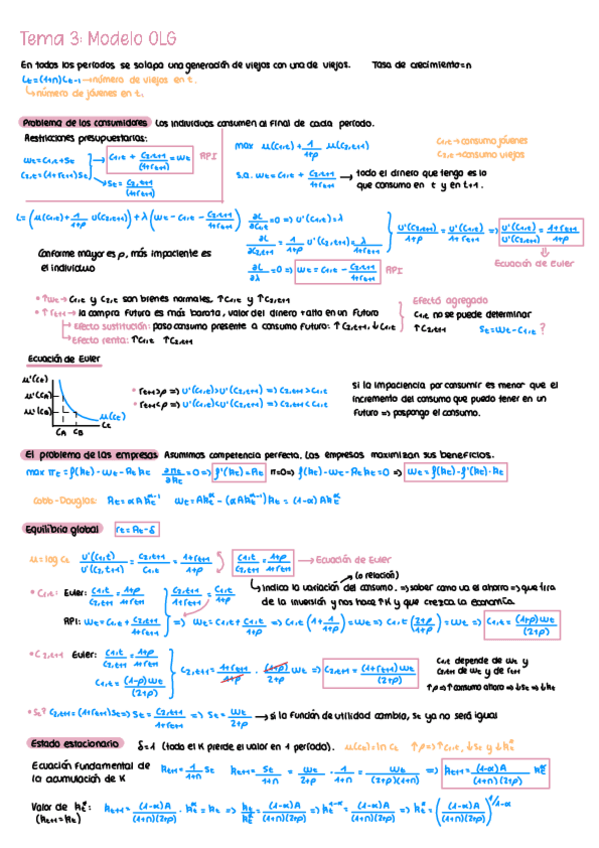 Tema 3: Modelo OLG
En todos los períodos se solapa una generación de viejos con una de viejos. Tasa de crecimiento=n
Lt=(1+n)Lt-1→número de viejos en t.
↳número de jóvenes en t.
Problema de los consumidores Los individuos consumen al final de cada período.
Restricciones presupuestarias:
max u(C1,t)+1/(1+ρ) u(C2,t+1)
C1,t→consumo jóvenes
C2,t→consumo viejos
Wt=C1,t+St
C2,t=(1+rt+1)St
C1,t + C2,t+1/(1+rt+1) = Wt RPI
St = C2,t+1/(1+rt+1)
s.a. Wt=C1,t + C2,t+1/(1+rt+1) → todo el dinero que tengo es lo
que consumo en t y en t+1.
L=(u(C1,t)+1/(1+ρ) u(C2,t+1))+λ(Wt-C1,t-C2,t+1/(1+rt+1))
∂L/∂C1,t=0 => u'(C1,t)=λ
∂L/∂C2,t+1 = 1/(1+ρ) u'(C2,t+1)=λ/(1+rt+1)
u'(C2,t+1)/(1+ρ) = u'(C1,t)/(1+rt+1) => u'(C1,t)/u'(C2,t+1) = (1+rt+1)/(1+ρ)
Ecuación de Euler
Conforme mayor es ρ, más impaciente es
el individuo
∂L/∂λ=0 => Wt=C1,t - C2,t+1/(1+rt+1) RPI
• ↑Wt→ C1,t y C2,t son bienes normales. ↑C1,t y ↑C2,t+1
• ↑rt+1→ la compra futura es más barata, valor del dinero ↑alta en un futuro
→Efecto sustitución: paso consumo presente a consumo futuro: ↑C2,t+1, ↓C1,t
→Efecto renta: ↑C1,t ↑C2,t+1
Efecto agregado
C1,t no se puede determinar
↑C2,t+1 St=Wt-C1,t ?
Ecuación de Euler
u'(Ct)
u'(CA)
u'(CB)
u(Ct)
Ct
CA CB
• rt+1>ρ => u'(C1,t)>u'(C2,t+1) => C2,t+1>C1,t
• rt+1<ρ => u'(C1,t)<u'(C2,t+1) => C2,t+1<C1,t
Si la impaciencia por consumir es menor que el
incremento del consumo que puedo tener en un
futuro => pospongo el consumo.
El problema de las empresas Asumimos competencia perfecta. Las empresas maximizan sus beneficios.
max πt=f(kt)-Wt-Rt kt ∂πt/∂kt=0 => f'(kt)=Rt π=0=> f(kt)-Wt-Rt kt=0 => Wt=f(kt)-f'(kt)·kt
Cobb-Douglas: Rt=αAkt^(α-1) Wt=Akt^α-(αAkt^(α-1))kt = (1-α)Akt^α
Equilibrio global rt=Rt-δ
u=log Ct u'(C1,t)/u'(C2,t) = C2,t+1/C1,t = (1+rt+1)/(1+ρ) C1,t/C2,t+1 = (1+ρ)/(1+rt+1) → Ecuación de Euler
(o relación)
↳Indica la variación del consumo. => saber como va el ahorro => que tira
de la inversión y nos hace ↑K y que crezca la economía.
• C1,t: Euler: C1,t/C2,t+1 = (1+ρ)/(1+rt+1) C2,t+1/(1+rt+1) = C1,t/(1+ρ)
RPI: Wt=C1,t+C2,t+1/(1+rt+1) => Wt=C1,t+C1,t/(1+ρ) => C1,t(1+1/(1+ρ))=Wt => C1,t((2+ρ)/(1+ρ))=Wt => C1,t=(1+ρ)Wt/(2+ρ)
• C2,t+1 Euler: C1,t/C2,t+1 = (1+ρ)/(1+rt+1)
C1,t=(1-ρ)Wt/(2+ρ)
C2,t+1=(1+rt+1)/(1+ρ) · (1+ρ)/(2+ρ) Wt => C2,t+1=(1+rt+1)Wt/(2+ρ)
C1,t depende de Wt y
C2,t+1 de Wt y de rt+1
↑ρ=>↑consumo ahora => ↓St => ↓kt
• St? C2,t+1=(1+rt+1)St => St=C2,t+1/(1+rt+1) => St=Wt/(2+ρ) → si la función de utilidad cambia, St ya no será igual
Estado estacionario δ=1 (todo el K pierde el valor en 1 período). u(Ct)=ln Ct ↑ρ=>↑C1,t, ↓St y ↓kt*
Ecuación fundamental de
la acumulación de K
kt+1=1/(1+n) St kt+1=St/(1+n) = Wt/(2+ρ) · 1/(1+n) = Wt/((2+ρ)(1+n)) => kt+1=(1-α)A/((1+n)(2+ρ)) kt^α
Valor de kt*:
(kt+1=kt)
kt+1=(1-α)A/((1+n)(2+ρ)) · kt^α=kt => kt/kt^α=(1-α)A/((1+n)(2+ρ)) => kt^(1-α)=(1-α)A/((1+n)(2+ρ)) => kt*=((1-α)A/((1+n)(2+ρ)))^(1/1-α)